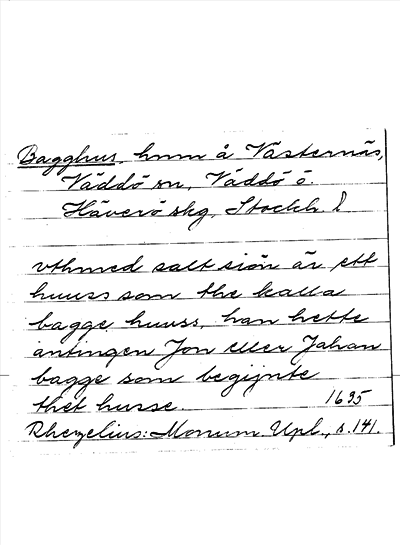 Bagghus, hmn å Västernäs,
Väddö sn, Väddö ö.
Häverö skg, Stockh. l
vthmed salt siön är ett
huuss som the kalla
bagge huuss, han hette
antingen Jon eller Jahan
bagge som begijnte
thet husse. 1635
Rhezelius: Monum. Upl., s. 141.